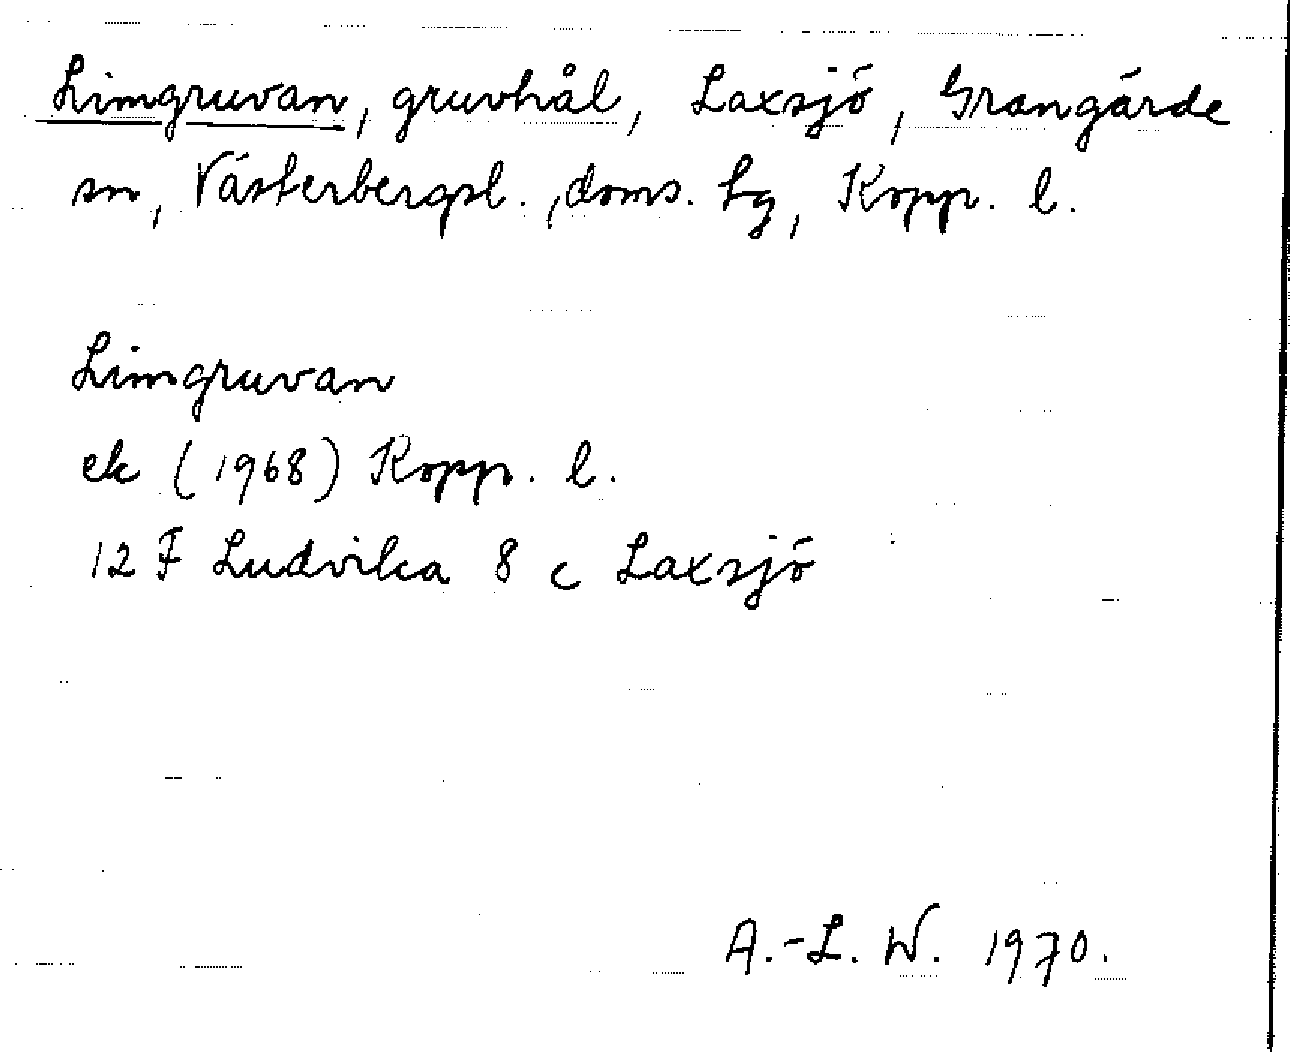 Limgruvan, gruvhål, Laxsjö, Grangärde
sn, Västerbergsl., doms. hg, Kopp. l.
Limgruvan
ek (1968) Kopp. l.
12 F Ludvika 8 c Laxsjö
A.-L. W. 1970.